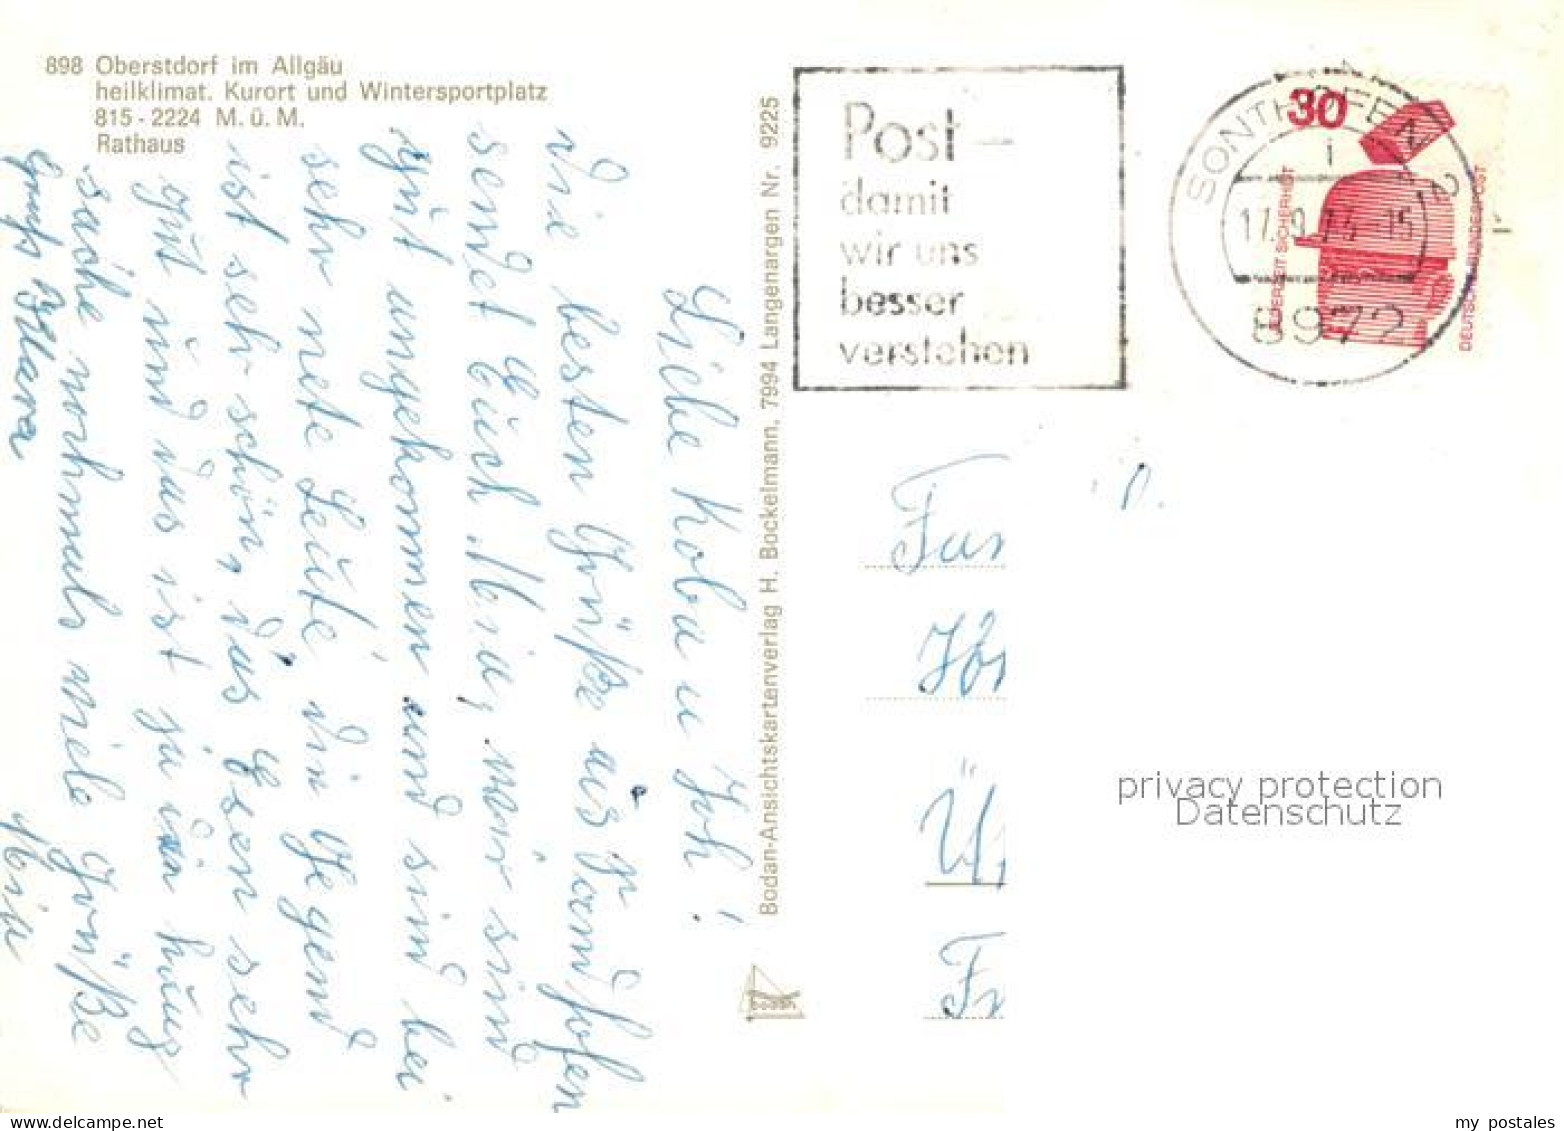 898 Oberstdorf im Allgäu
heilklimat. Kurort und Wintersportplatz
815 - 2224 M. ü. M.
Rathaus
Liebe Koba u Joh!
Die besten Grüße aus
sendet Euch Mia, wir sind
gut angekommen und sind bei
sehr nete Leute, die Gegend
ist sehr schön, das Essen sehr
gut und das ist ja
sache nochmals viele Grüße
Mia
Gruß
Bodan-Ansichtskartenverlag H. Bockelmann, 7994 Langenargen Nr. 9225
bodan
Post -
damit
wir uns
besser
verstehen
SONTHOFEN 2
i
8972
30
JEDERZEIT SICHERHEIT
DEUTSCHE BUNDESPOST
Fa
privacy protection
Datenschutz
www.delcampe.net
my_postales